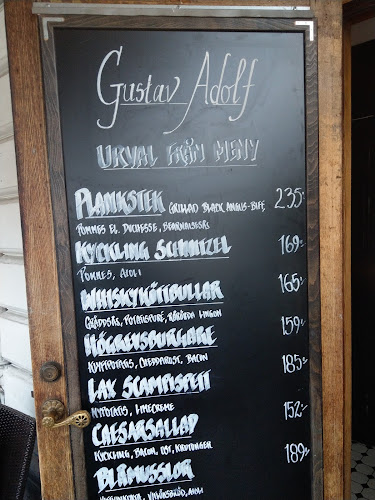 Gustav Adolf
URVAL FRÅN MENY
PLANKSTEK GRILLAD BLACK ANGUS-BIFF, 235:-
POMMES EL. DUCHESSE, BEARNAISESÅS
KYCKLING SCHNITZEL 169:-
POMMES, AIOLI
WHISKYKÖTTBULLAR 165:-
GRÄDDSÅS, POTATISPURÉ, RÅRÖRDA LINGON
HÖGREVSBURGARE 159:-
KLYFTPOTATIS, CHEDDAROST, BACON
LAX SCAMPISPETT 185:-
NYPOTATIS, LIMECREME
CAESARSALLAD 152:-
KYCKLING, BACON, OST, KRUTONGER
BLÅMUSSLOR 189:-
VITLÖKSBRÖD, AIOLI